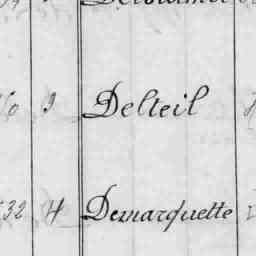 9 Delteil
32 4 Demarquette